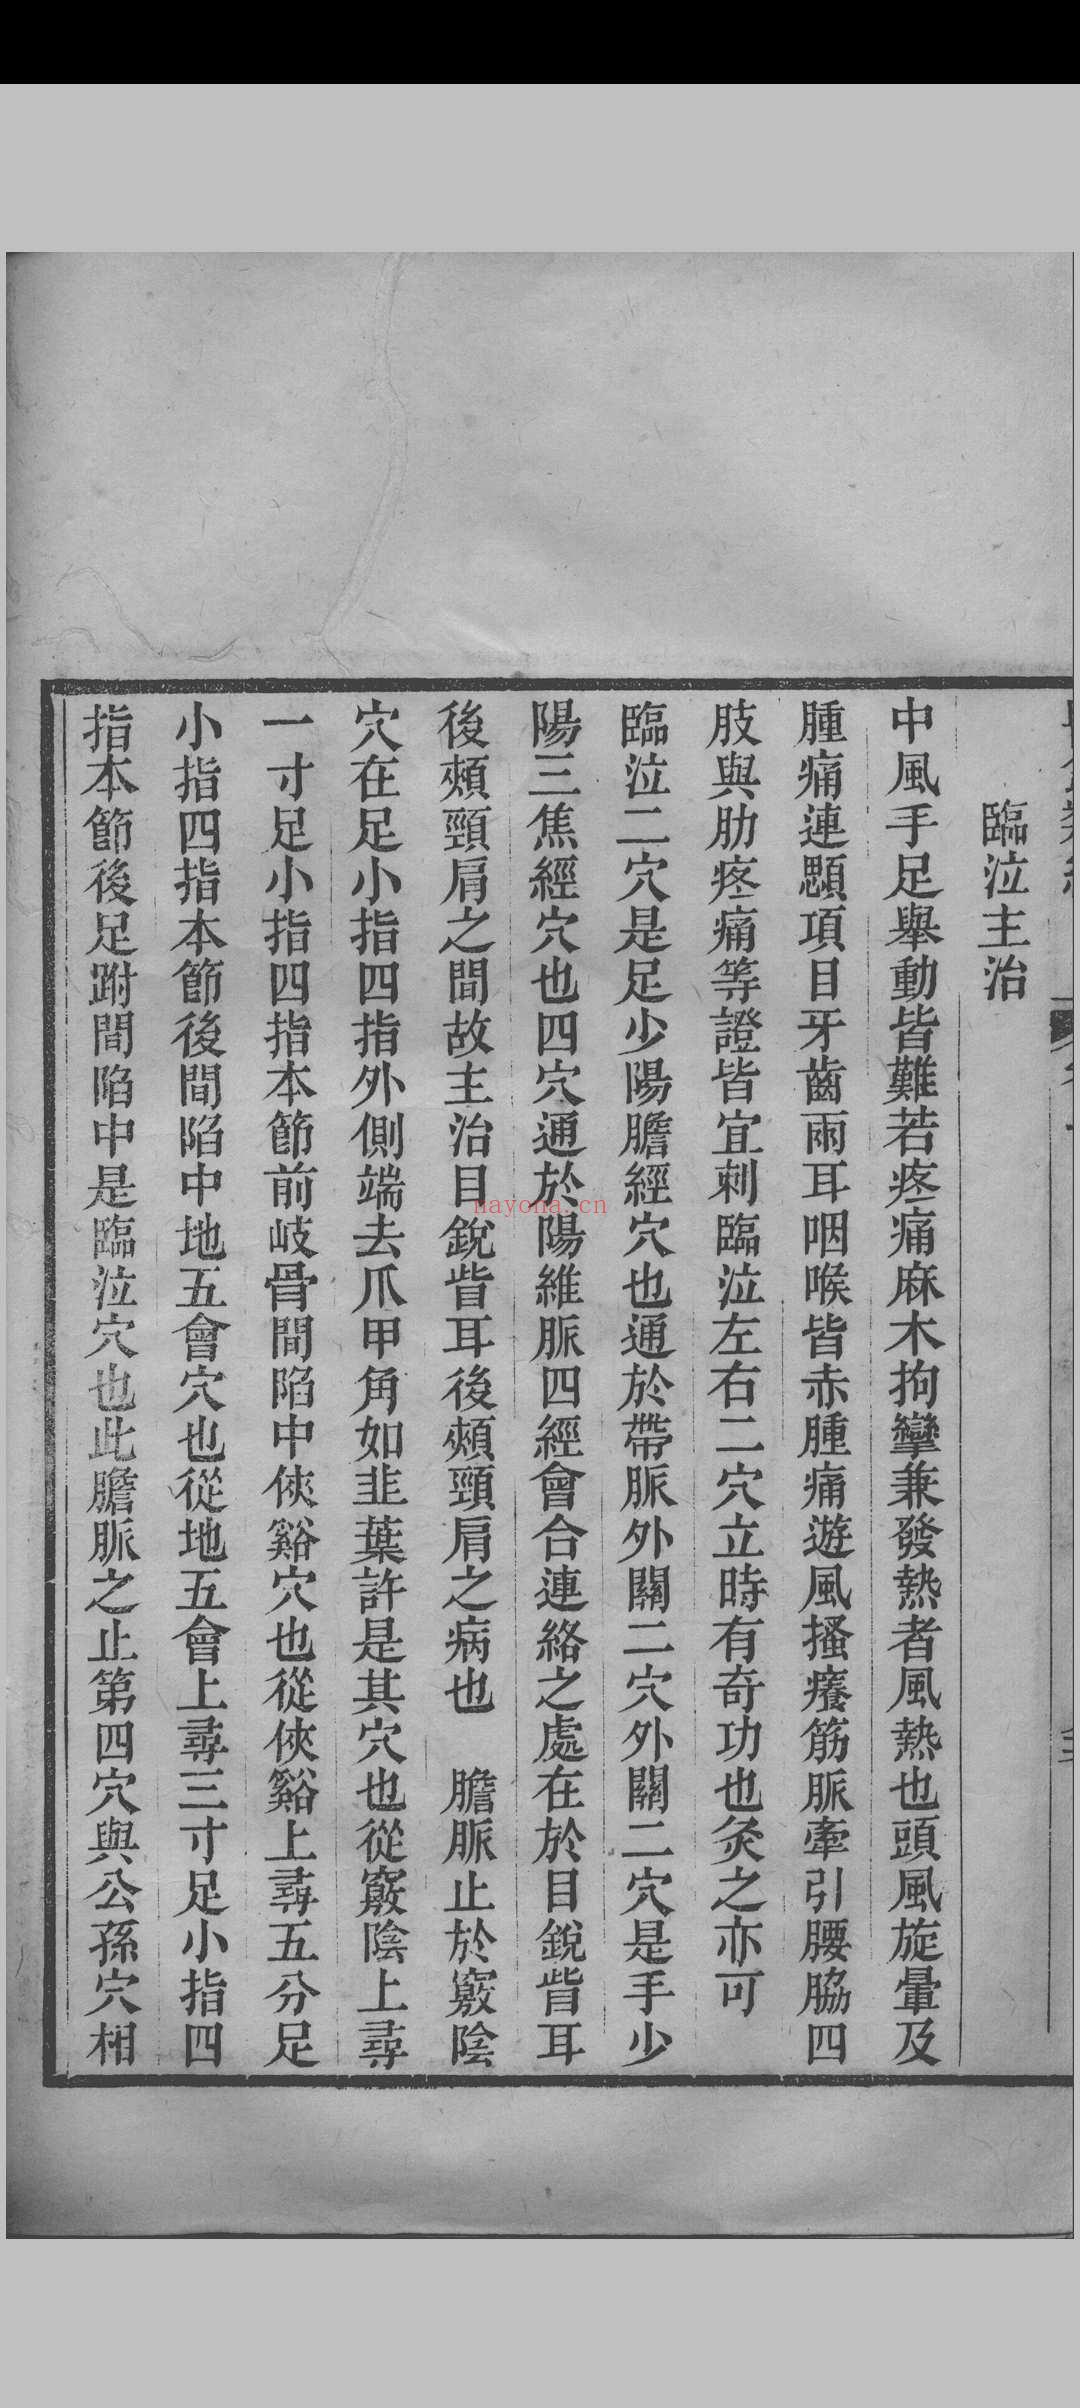 臨泣主治
中風手足舉動皆難若疼痛麻木拘攣兼發熱者風熱也頭風旋暈及
腫痛連顋項目牙齒兩耳咽喉皆赤腫痛遊風搔癢筋脈牽引腰脇四
肢與肋疼痛等證皆宜刺臨泣左右二穴立時有奇功也灸之亦可
臨泣二穴是足少陽膽經穴也通於帶脈外關二穴外關二穴是手少
陽三焦經穴也四穴通於陽維脈四經會合連絡之處在於目銳眥耳
後頰頸肩之間故主治目銳眥耳後頰頸肩之病也　膽脈止於竅陰
穴在足小指四指外側端去爪甲角如韭葉許是其穴也從竅陰上尋
一寸足小指四指本節前岐骨間陷中俠谿穴也從俠谿上尋五分足
小指四指本節後間陷中地五會穴也從地五會上尋三寸足小指四
指本節後足跗間陷中是臨泣穴也此膽脈之止第四穴與公孫穴相
nayona.cn